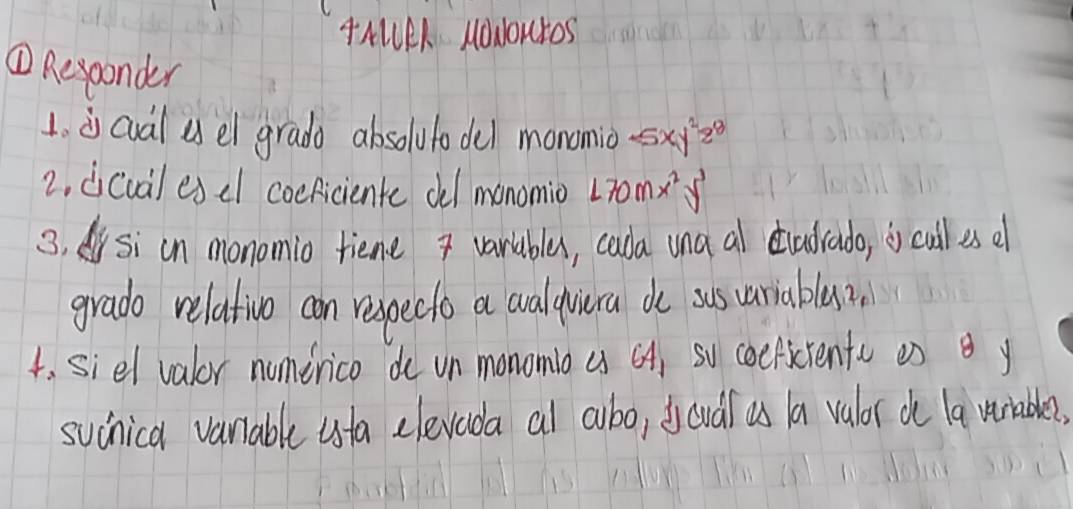 TALLER MONOMIOS
① Responder
1. ¿ cuál es el grado absoluto del monomio -5xy²z⁸
2. ¿ Cuál es el coeficiente del monomio 170mx²y³
3. si un monomio tiene 7 variables, cada una al cuadrado, ¿ cuál es el
grado relativo con respecto a cualquiera de sus variables?.
4. si el valor numérico de un monomio es 64, su coeficiente es 8 y
su única variable esta elevada al cubo, ¿ cuál es la valor de la variable?.